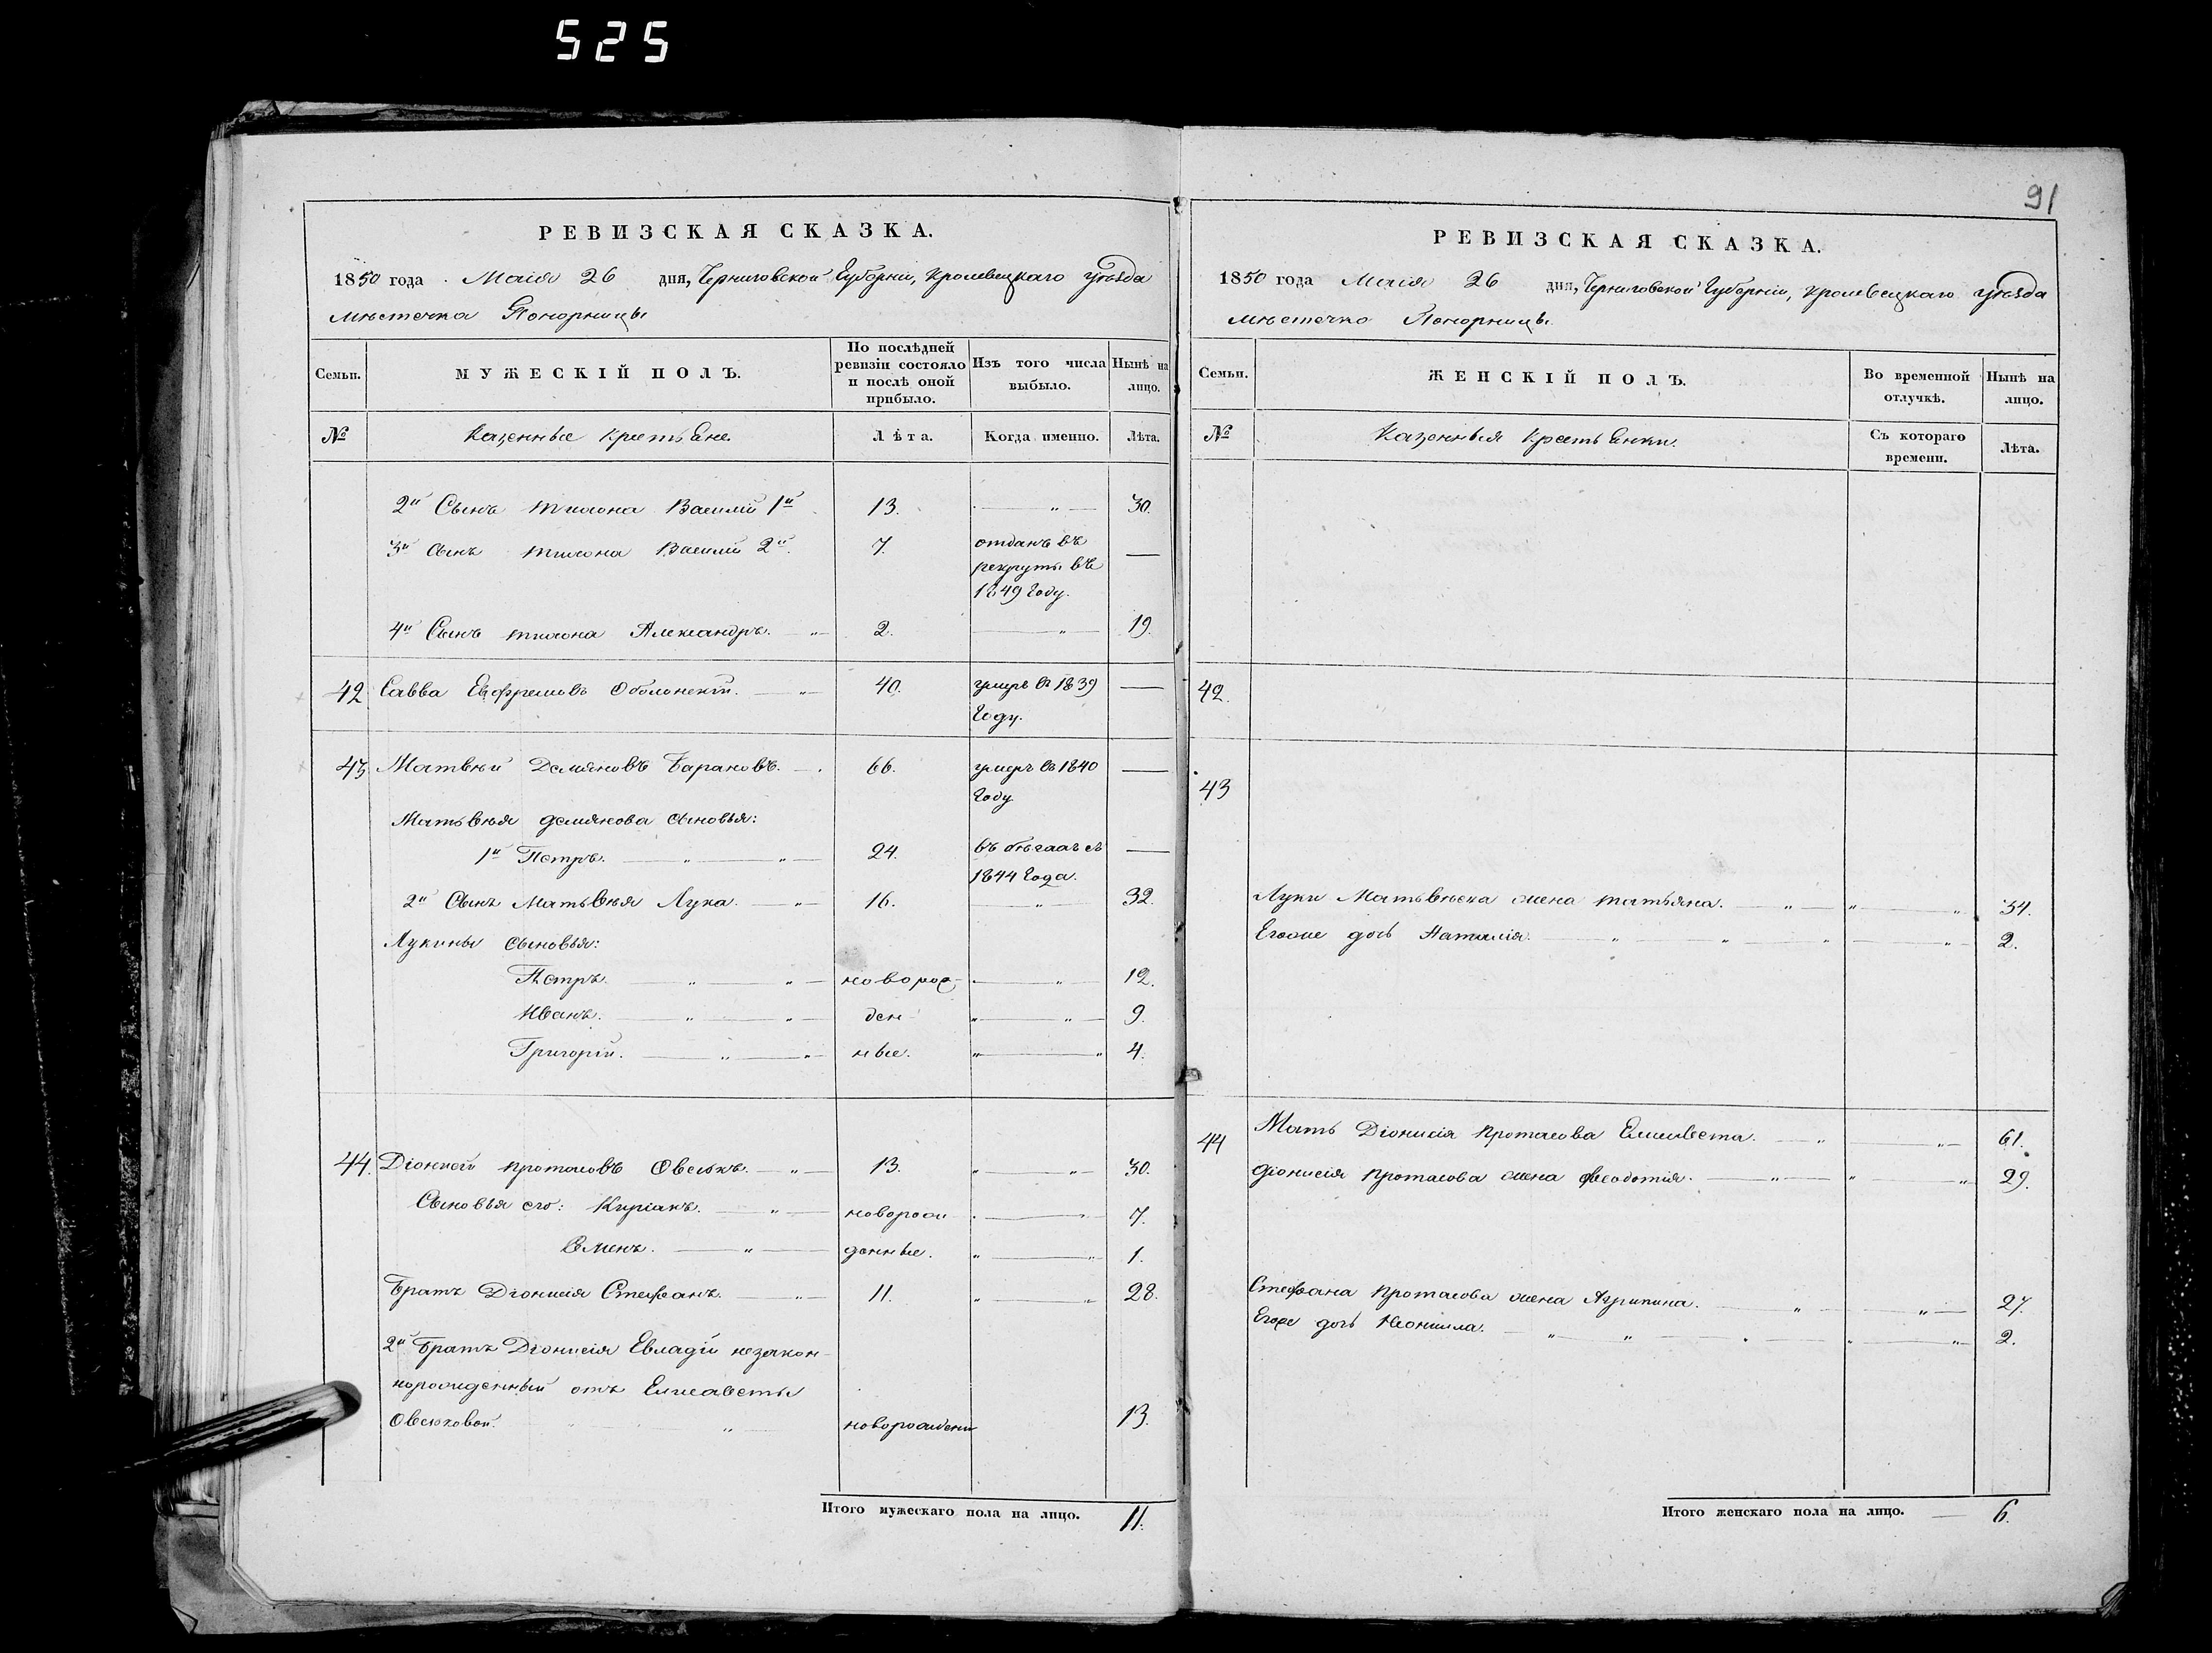 525
91
РЕВИЗСКАЯ СКАЗКА.
1850 года Маія 26 дня, Черниговской Губерніи, Кролевецкаго уѣзда
мѣстечка Понорницы
Семьи. МУЖЕСКІЙ ПОЛЪ. По послѣдней ревизіи состояло и послѣ оной прибыло. Изъ того числа выбыло. Нынѣ на лицо.
№ Казенные крестьяне. Лѣта. Когда именно. Лѣта.
2й Сынъ Василій 1й 13. 30.
3й Сынъ Василій 2й. 7. отданъ въ —
рекруты въ
1849 году.
4й Сынъ Александръ. 2. 19.
42 Савва Евфремовъ Оболонскій. 40. умеръ въ 1839 —
году.
43. Матвѣй Демяновъ Барановъ. 66. умеръ въ 1840 —
году
Матвѣя демянова сыновья:
1й Петръ. 24. въ бѣгахъ съ —
1844 года.
2й Сынъ Матвѣя Лука. 16. 32.
Лукины сыновья:
Петръ. новорож- 12.
Иванъ. ден- 9.
Григорій. ные. 4.
44. Діонисій Протасовъ Овсюкъ. 13. 30.
Сыновья его: Киріакъ. новорож- 7.
денные. 1.
Братъ Діонисія Стефанъ. 11. 28.
2й Братъ Діонисія Евладій незакон-
норожденный отъ Елисаветы
Овсюковой. новорожден 13.
Итого мужескаго пола на лицо. 11.
РЕВИЗСКАЯ СКАЗКА.
1850 года Маія 26 дня, Черниговской Губерніи, Кролевецкаго уѣзда
мѣстечка Понорницы.
Семьи. ЖЕНСКІЙ ПОЛЪ. Во временной отлучкѣ. Нынѣ на лицо.
№ Казенныя Крестьянки. Съ котораго времени. Лѣта.
42.
43
Луки Матвѣева жена Татьяна. 34.
Егоже дочь Наталія. 2.
44 Мать Діонисія Протасова Елисавета. 61.
Діонисія Протасова жена Феодотія. 29.
Стефана Протасова жена Агрипина. 27.
Егоже дочь Неонила. 2.
Итого женскаго пола на лицо. 6.